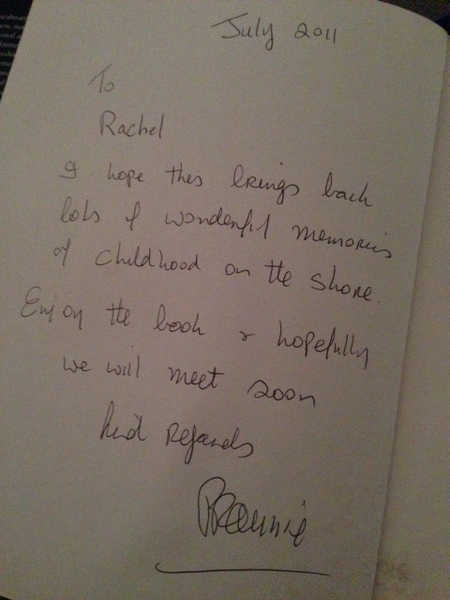 July 2011
To
Rachel
I hope this brings back
lots of wonderful memories
of childhood on the shore.
Enjoy the book & hopefully
we will meet soon
kind Regards